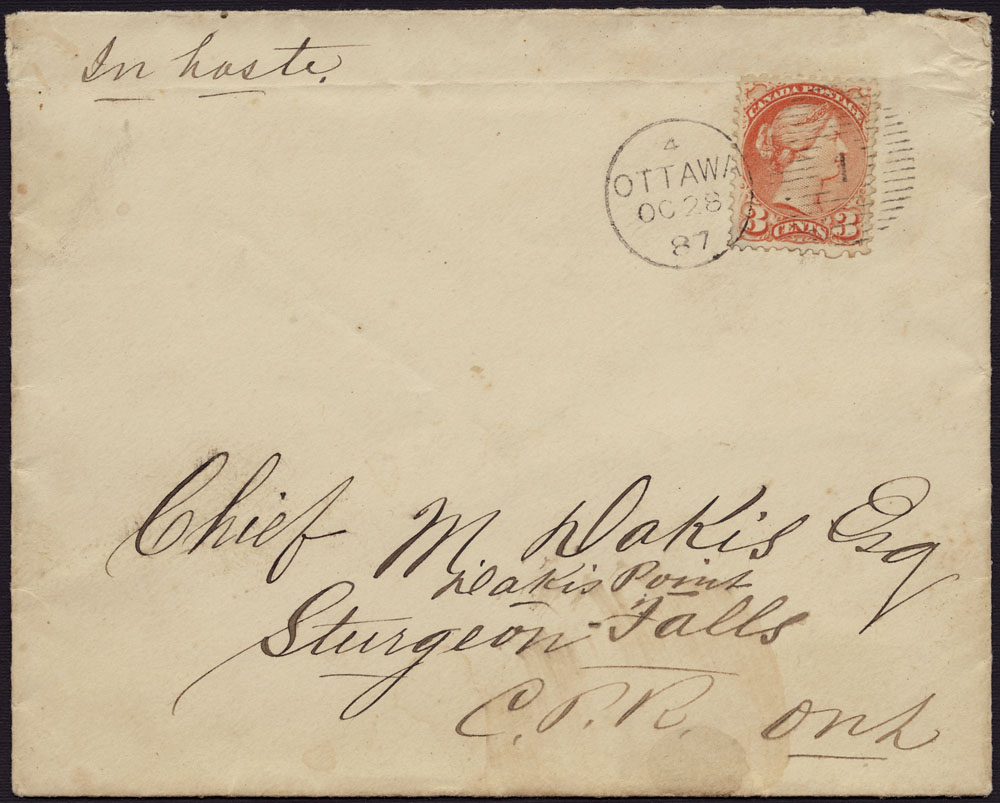 In haste.
CANADA POSTAGE
4
OTTAWA
OC 28
87
1
3 CENTS 3
Chief M. Dakis Esq
Dakis Point
Sturgeon-Falls
C.P.R. Ont